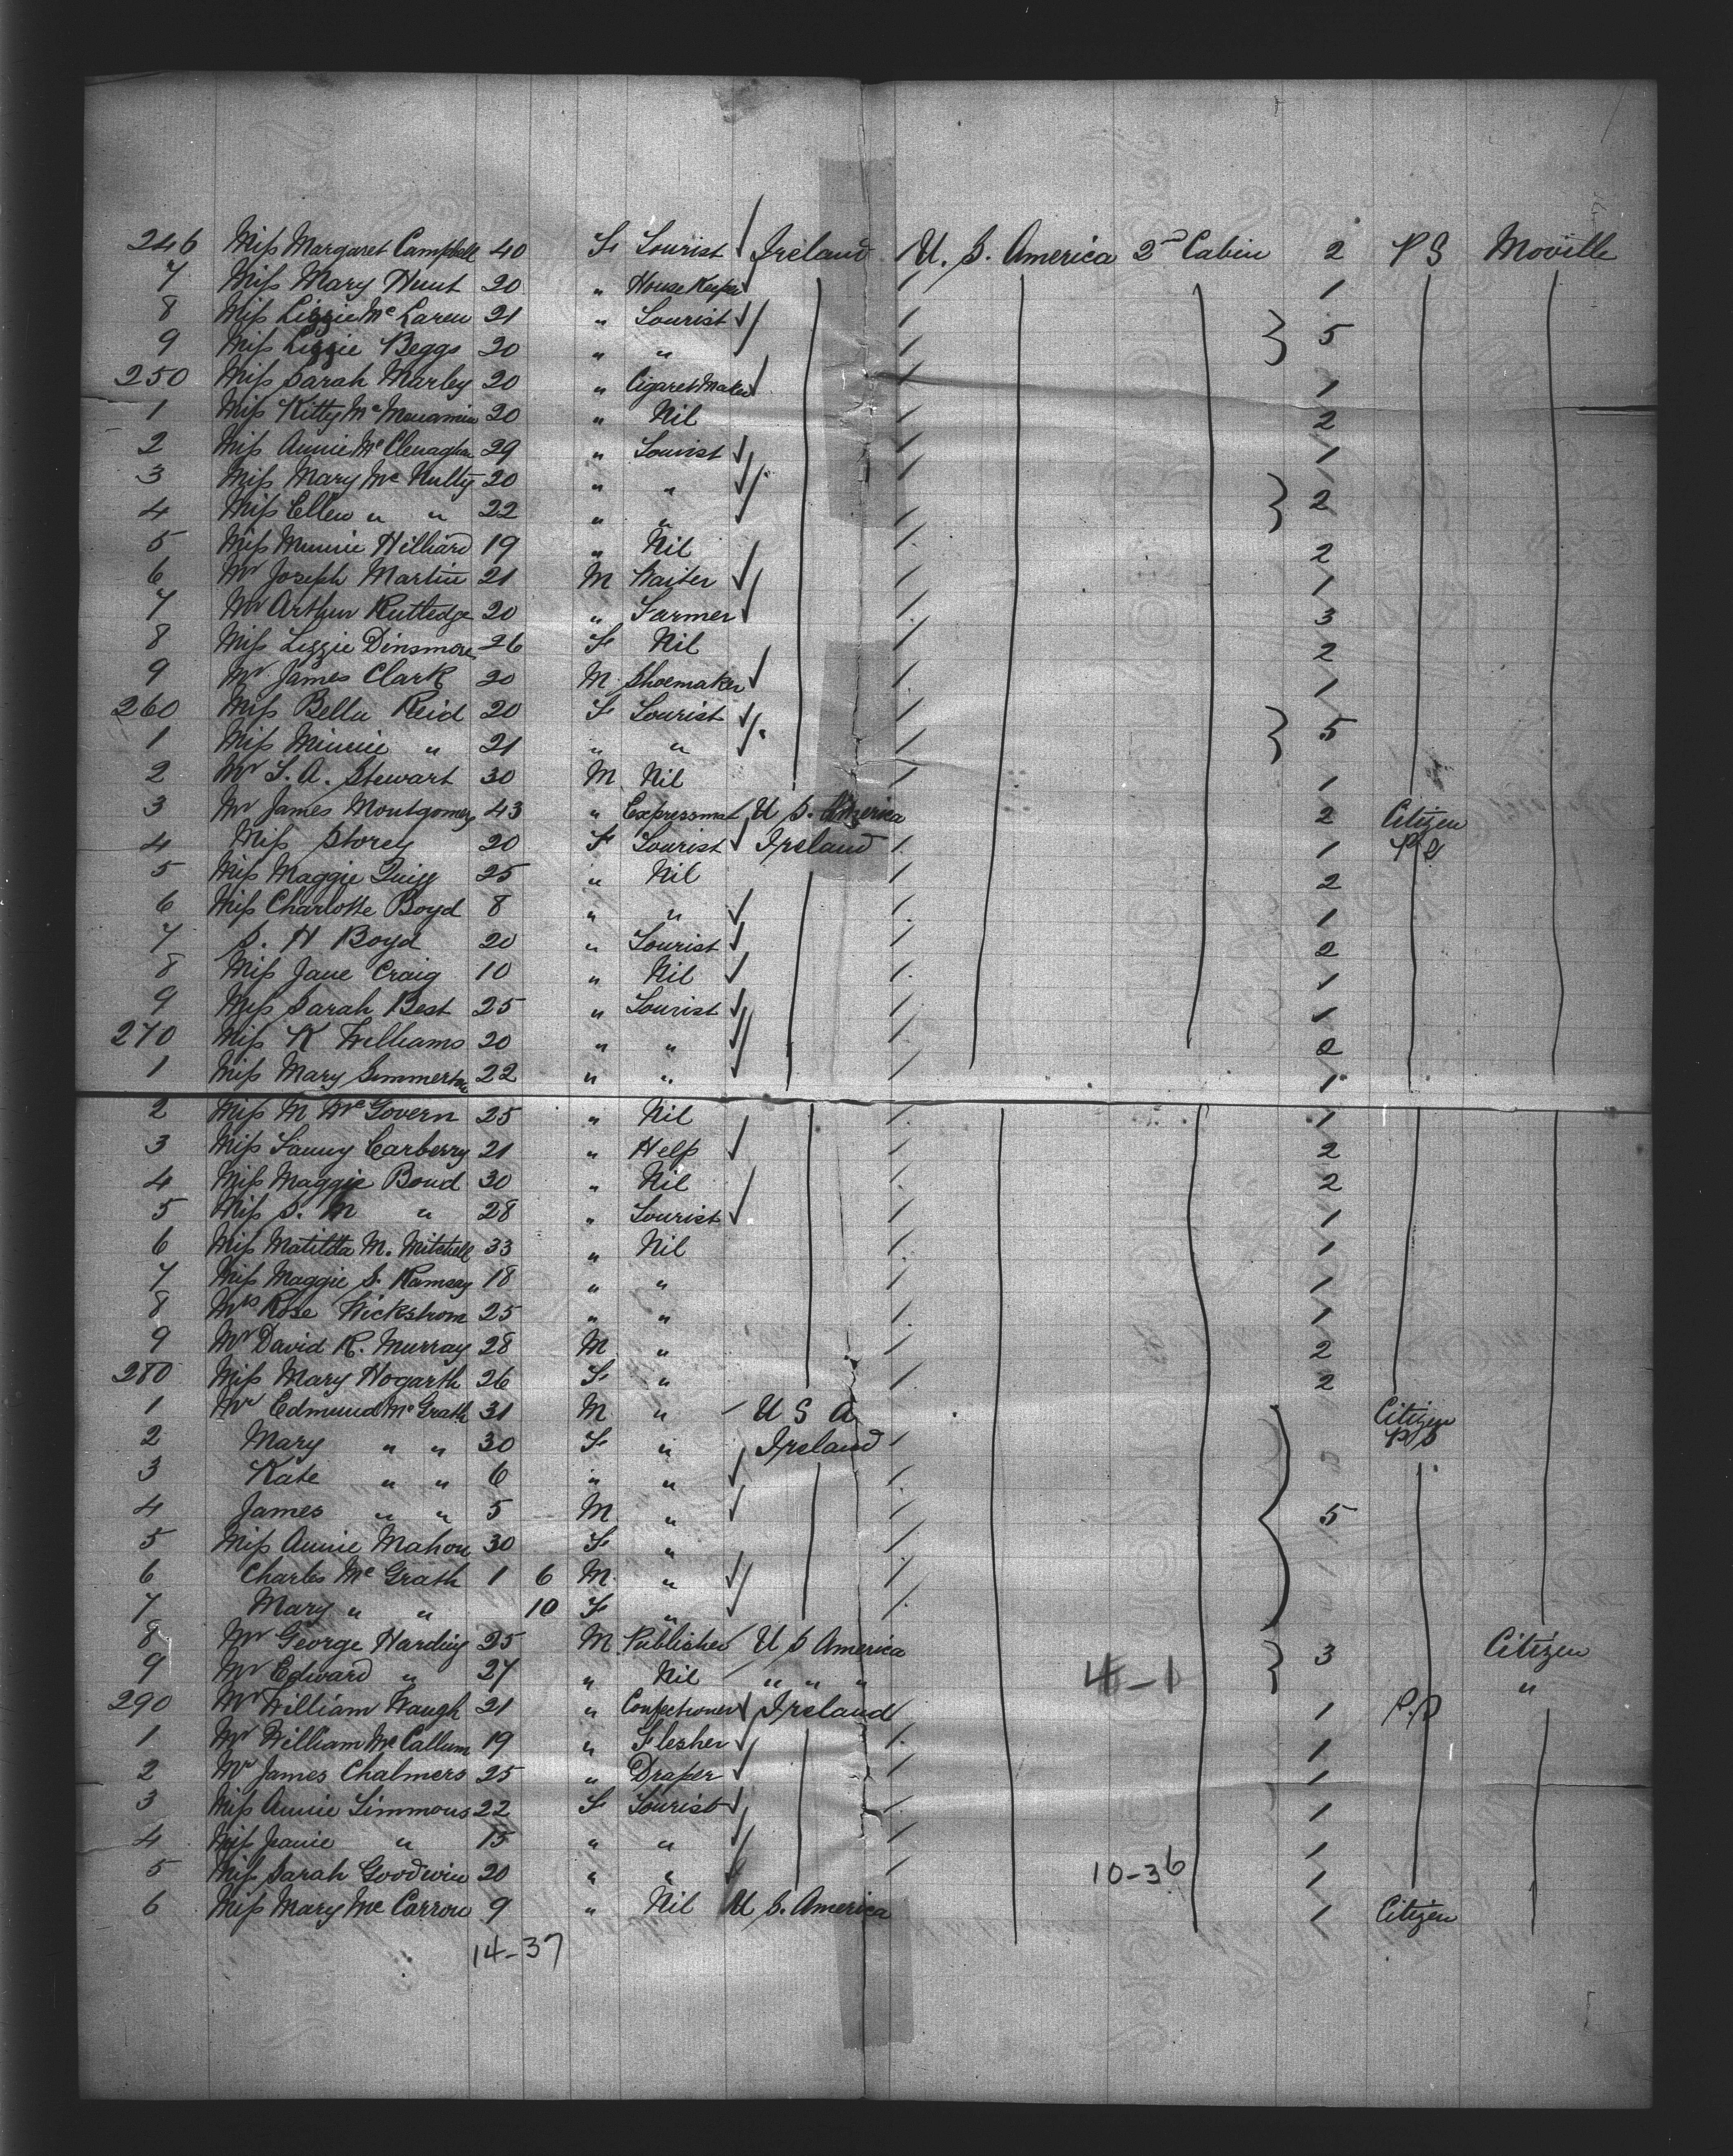 246 Miss Margaret Campbell 40 F Tourist Ireland U. S. America 2nd Cabin 2 P S Moville
7 Miss Mary Hunt 20 " House Keeper 1
8 Miss Lizzie McLaren 21 " Tourist } 5
9 Miss Lizzie Beggs 20 " "
250 Miss Sarah Marley 20 " Cigaret Maker 1
1 Miss Kitty McMenamin 20 " Nil 2
2 Miss Annie McClenaghan 29 " Tourist 1
3 Miss Mary McNulty 20 " " } 2
4 Miss Ellen " " 22 " "
5 Miss Minnie Hilliard 19 " Nil 2
6 Mr Joseph Martin 21 M Waiter 1
7 Mr Arthur Rutledge 20 " Farmer 3
8 Miss Lizzie Dinsmore 26 F Nil 2
9 Mr James Clark 20 M Shoemaker 1
260 Miss Bella Reid 20 F Tourist } 5
1 Miss Minnie " 21 " "
2 Mr S. A. Stewart 30 M Nil 1
3 Mr James Montgomery 43 " Expressman U S. America 2 Citizen
4 Miss Storey 20 F Tourist Ireland 1 P S
5 Miss Maggie Quigg 25 " Nil 2
6 Miss Charlotte Boyd 8 " " 1
7 S. H Boyd 20 " Tourist 2
8 Miss Jane Craig 10 " Nil 1
9 Miss Sarah Best 25 " Tourist 1
270 Miss K Williams 20 " " 2
1 Miss Mary 22 " " 1
2 Miss M McGovern 25 " Nil 1
3 Miss Fanny Carberry 21 " Help 2
4 Miss Maggie Bond 30 " Nil 2
5 Miss S. M " 28 " Tourist 1
6 Miss Matilda M. Mitchell 33 " Nil 1
7 Miss Maggie S. Ramsey 18 " " 1
8 Mrs Rose Wickstrom 25 " " 1
9 Mr David R. Murray 28 M " 2
280 Miss Mary Hogarth 26 F " 2
1 Mr Edmund McGrath 31 M " U S A Citizen
2 Mary " " 30 F " Ireland P S
3 Kate " " 6 " "
4 James " " 5 M " } 5
5 Miss Annie Mahon 30 F "
6 Charles McGrath 1 6 M "
7 Mary " " 10 F "
8 Mr George Harding 25 M Publisher U S America } 3 Citizen
9 Mr Edward " 27 " Nil " " " 4-1 "
290 Mr William Waugh 21 " Confectioner Ireland 1 P.S
1 Mr William McCallum 19 " Flesher 1
2 Mr James Chalmers 25 " Draper 1
3 Miss Annie Simmons 22 F Tourist 1
4 Miss Janie " 15 " " 1
5 Miss Sarah Goodwin 20 " " 10-36 1
6 Miss Mary McCarron 9 " Nil U S. America 1 Citizen
14-37